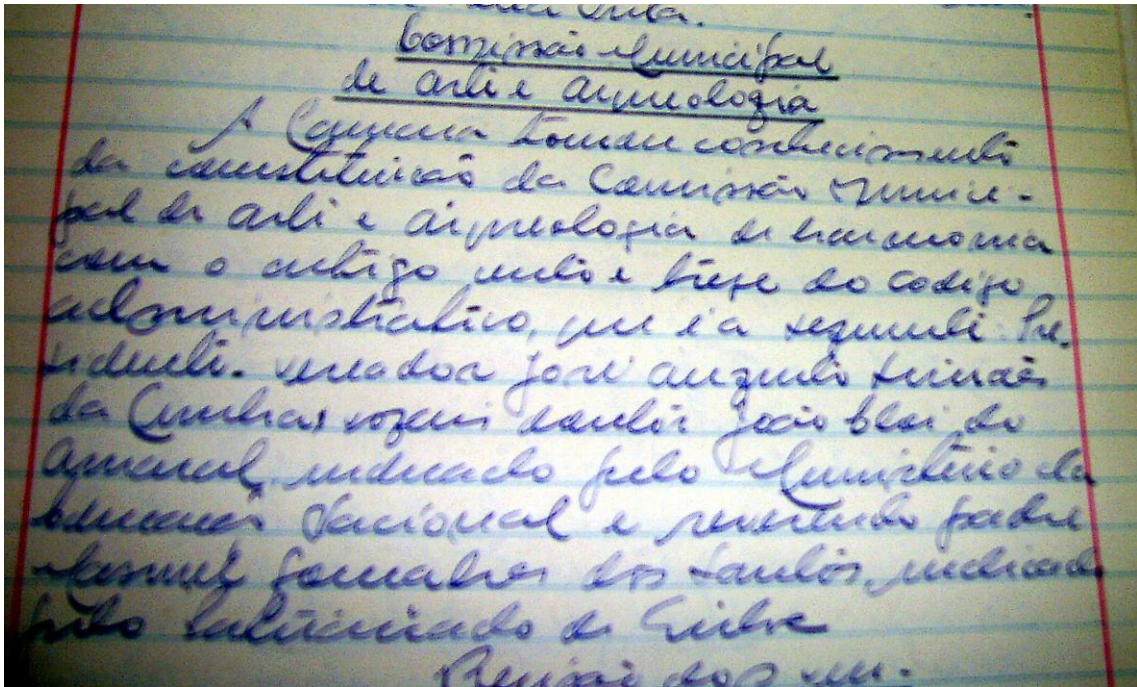 Comissão Municipal
de arte e arqueologia
A Camara tomou conhecimento
da constituição da Comissão Munici-
pal de arte e arqueologia de harmonia
com o artigo cento e treze do codigo
administrativo, que é a seguinte: Pre-
sidente. vereador José augusto Simões
da Cunha; vogais doutor João
Amaral, indicado pelo Ministério da
Educação Nacional e reverendo padre
Manuel Goncalves dos Santos, indicado
pelo de
Revisão dos